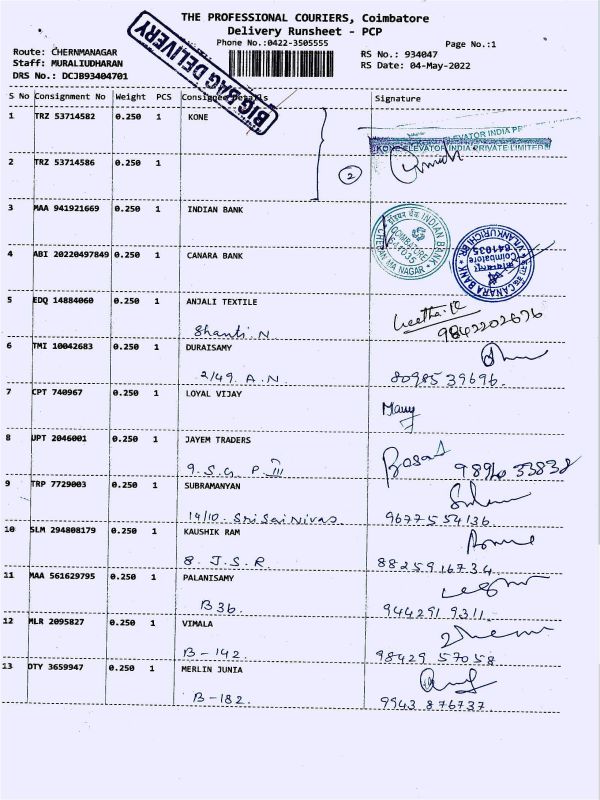 THE PROFESSIONAL COURIERS, Coimbatore
Delivery Runsheet - PCP
Phone No.:0422-3505555
Page No.:1
BIG BAG DELIVERY
Route: CHERNMANAGAR
Staff: MURALIUDHARAN
DRS No.: DCJB93404701
RS No.: 934047
RS Date: 04-May-2022
S No Consignment No Weight PCS Consignee Details Signature
1 TRZ 53714582 0.250 1 KONE
ELEVATOR INDIA PR
KONE ELEVATOR INDIA PRIVATE LIMITED
2 TRZ 53714586 0.250 1
2
3 MAA 941921669 0.250 1 INDIAN BANK
इंडियन बैंक INDIAN BANK
COIMBATORE
641035
CHERAN MA NAGAR
4 ABI 20220497849 0.250 1 CANARA BANK
CANARA BANK
VILANKURICHI BR.
Coimbatore
641035
5 EDQ 14884060 0.250 1 ANJALI TEXTILE
Shanti N
Geetha.K
9842202676
6 TMI 10042683 0.250 1 DURAISAMY
2/49. A.N.
80985 39696.
7 CPT 740967 0.250 1 LOYAL VIJAY
8 UPT 2046001 0.250 1 JAYEM TRADERS
9.S.G P III
98940 33838
9 TRP 7729003 0.250 1 SUBRAMANYAN
14/10 Sri Sai Nivas
96775 54136.
10 SLM 294808179 0.250 1 KAUSHIK RAM
8. J.S.R.
8825916734
11 MAA 561629795 0.250 1 PALANISAMY
B36.
944291 9311.
12 MLR 2095827 0.250 1 VIMALA
B-142.
98429 57058
13 OTY 3659947 0.250 1 MERLIN JUNIA
B-182.
9943 876737.